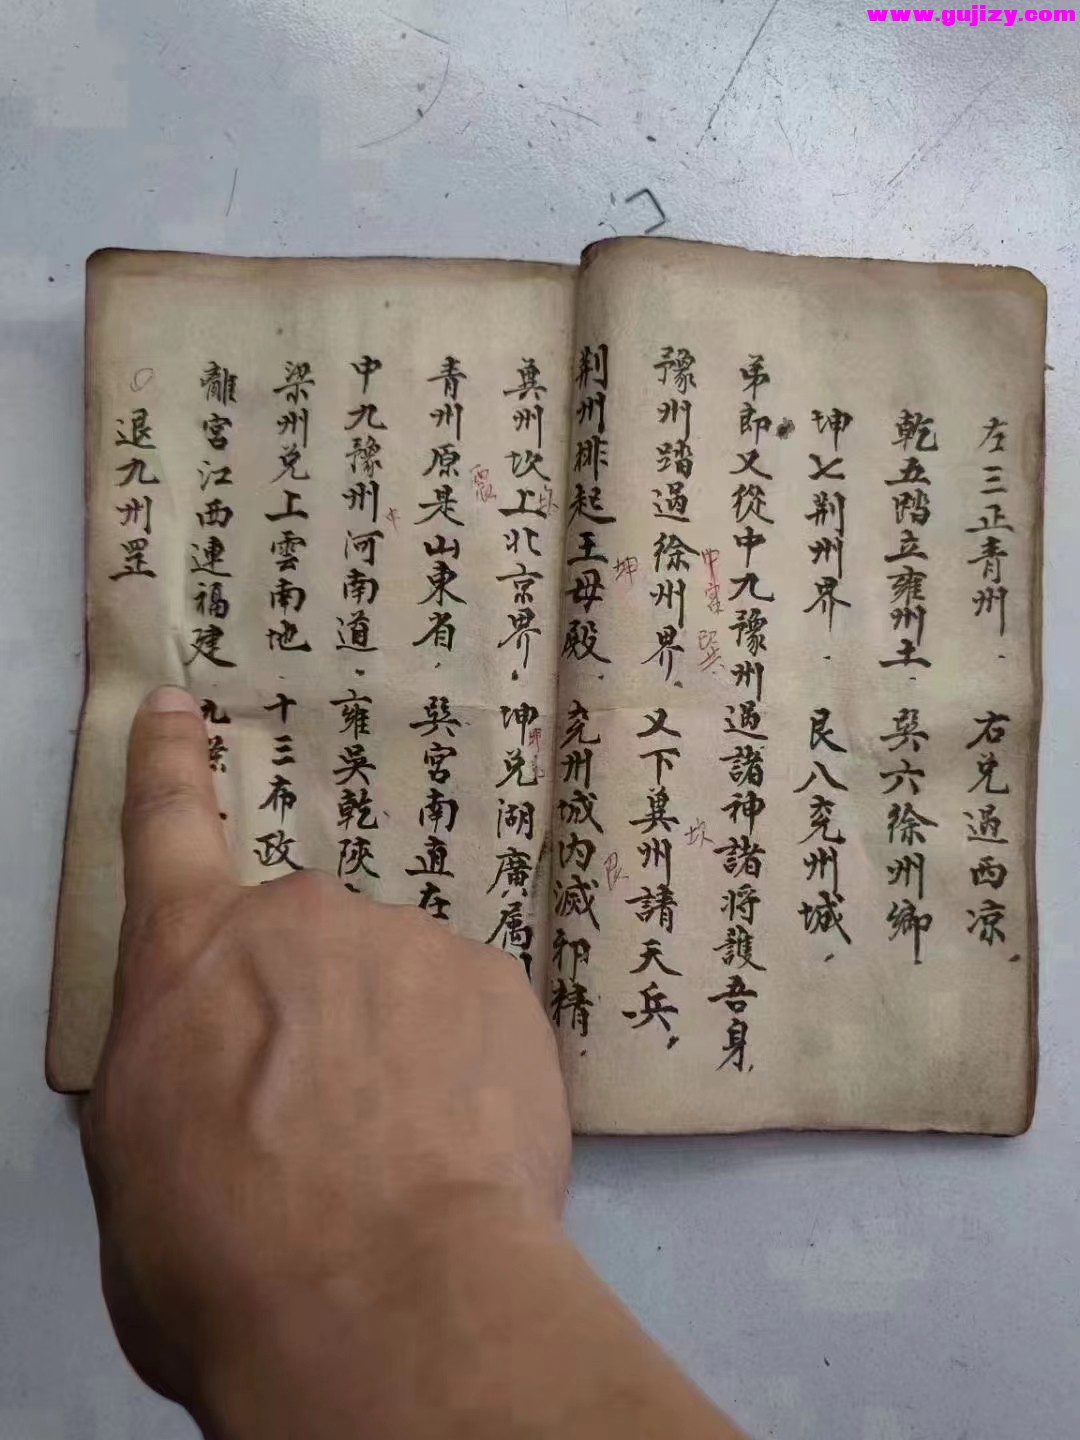 www.gujizy.com
左三正青州．右兌過西凉．
乾五踏立雍州土 巽六徐州鄉．
坤七荆州界．艮八兖州城．
弟即又從中九豫州過諸神諸将護吾身．
中宮
巽
豫州踏過徐州界．又下冀州請天兵．
坎
坤
荆州排起王母殿．兖州城内滅邪精．
艮
冀州坎上北京界．坤兌湖廣属
坎
青州原是山東省．巽宮南直在
震
中九豫州河南道．雍吴乾陝
中
梁州兌上雲南地．十三布政
離宮江西連福建．九
○退九州罡